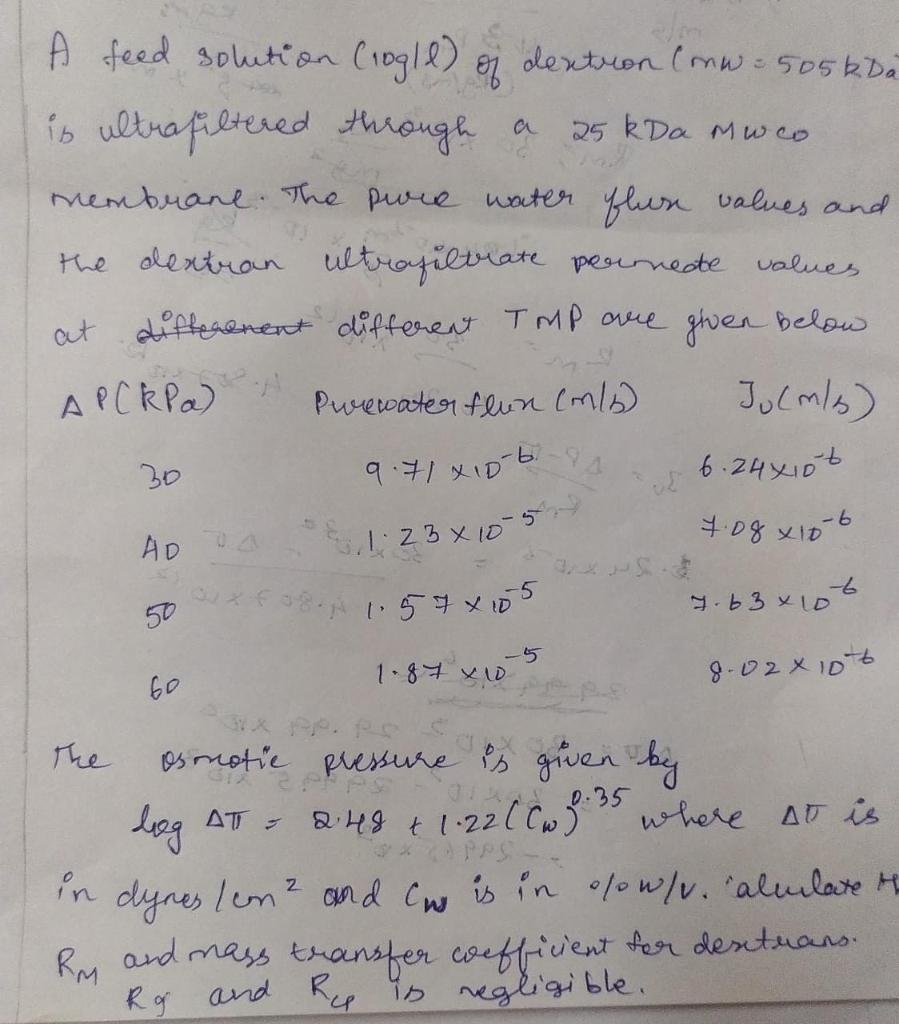 A feed solution (10g/l) of dextron (mw = 505kDa
is ultrafiltered through a 25 kDa Mwco
membrane. The pure water flux values and
the dextran ultrafiltrate permeate values
at differenent different TMP are given below
ΔP(kPa) Purewater flux (m/s) Jv(m/s)
30 9.71 x10⁻⁶ 6.24x10⁻⁶
40 1.23 x 10⁻⁵ 7.08 x10⁻⁶
50 1.57 x 10⁻⁵ 7.63 x 10⁻⁶
60 1.87 x10⁻⁵ 8.02 x 10⁻⁶
The osmotic pressure is given by
log Δπ = 2.48 + 1.22(Cw)^0.35 where Δπ is
in dynes/cm² and Cw is in % w/v. calculate
RM and mass transfer coefficient for dextrans.
Rg and Rcp is negligible.